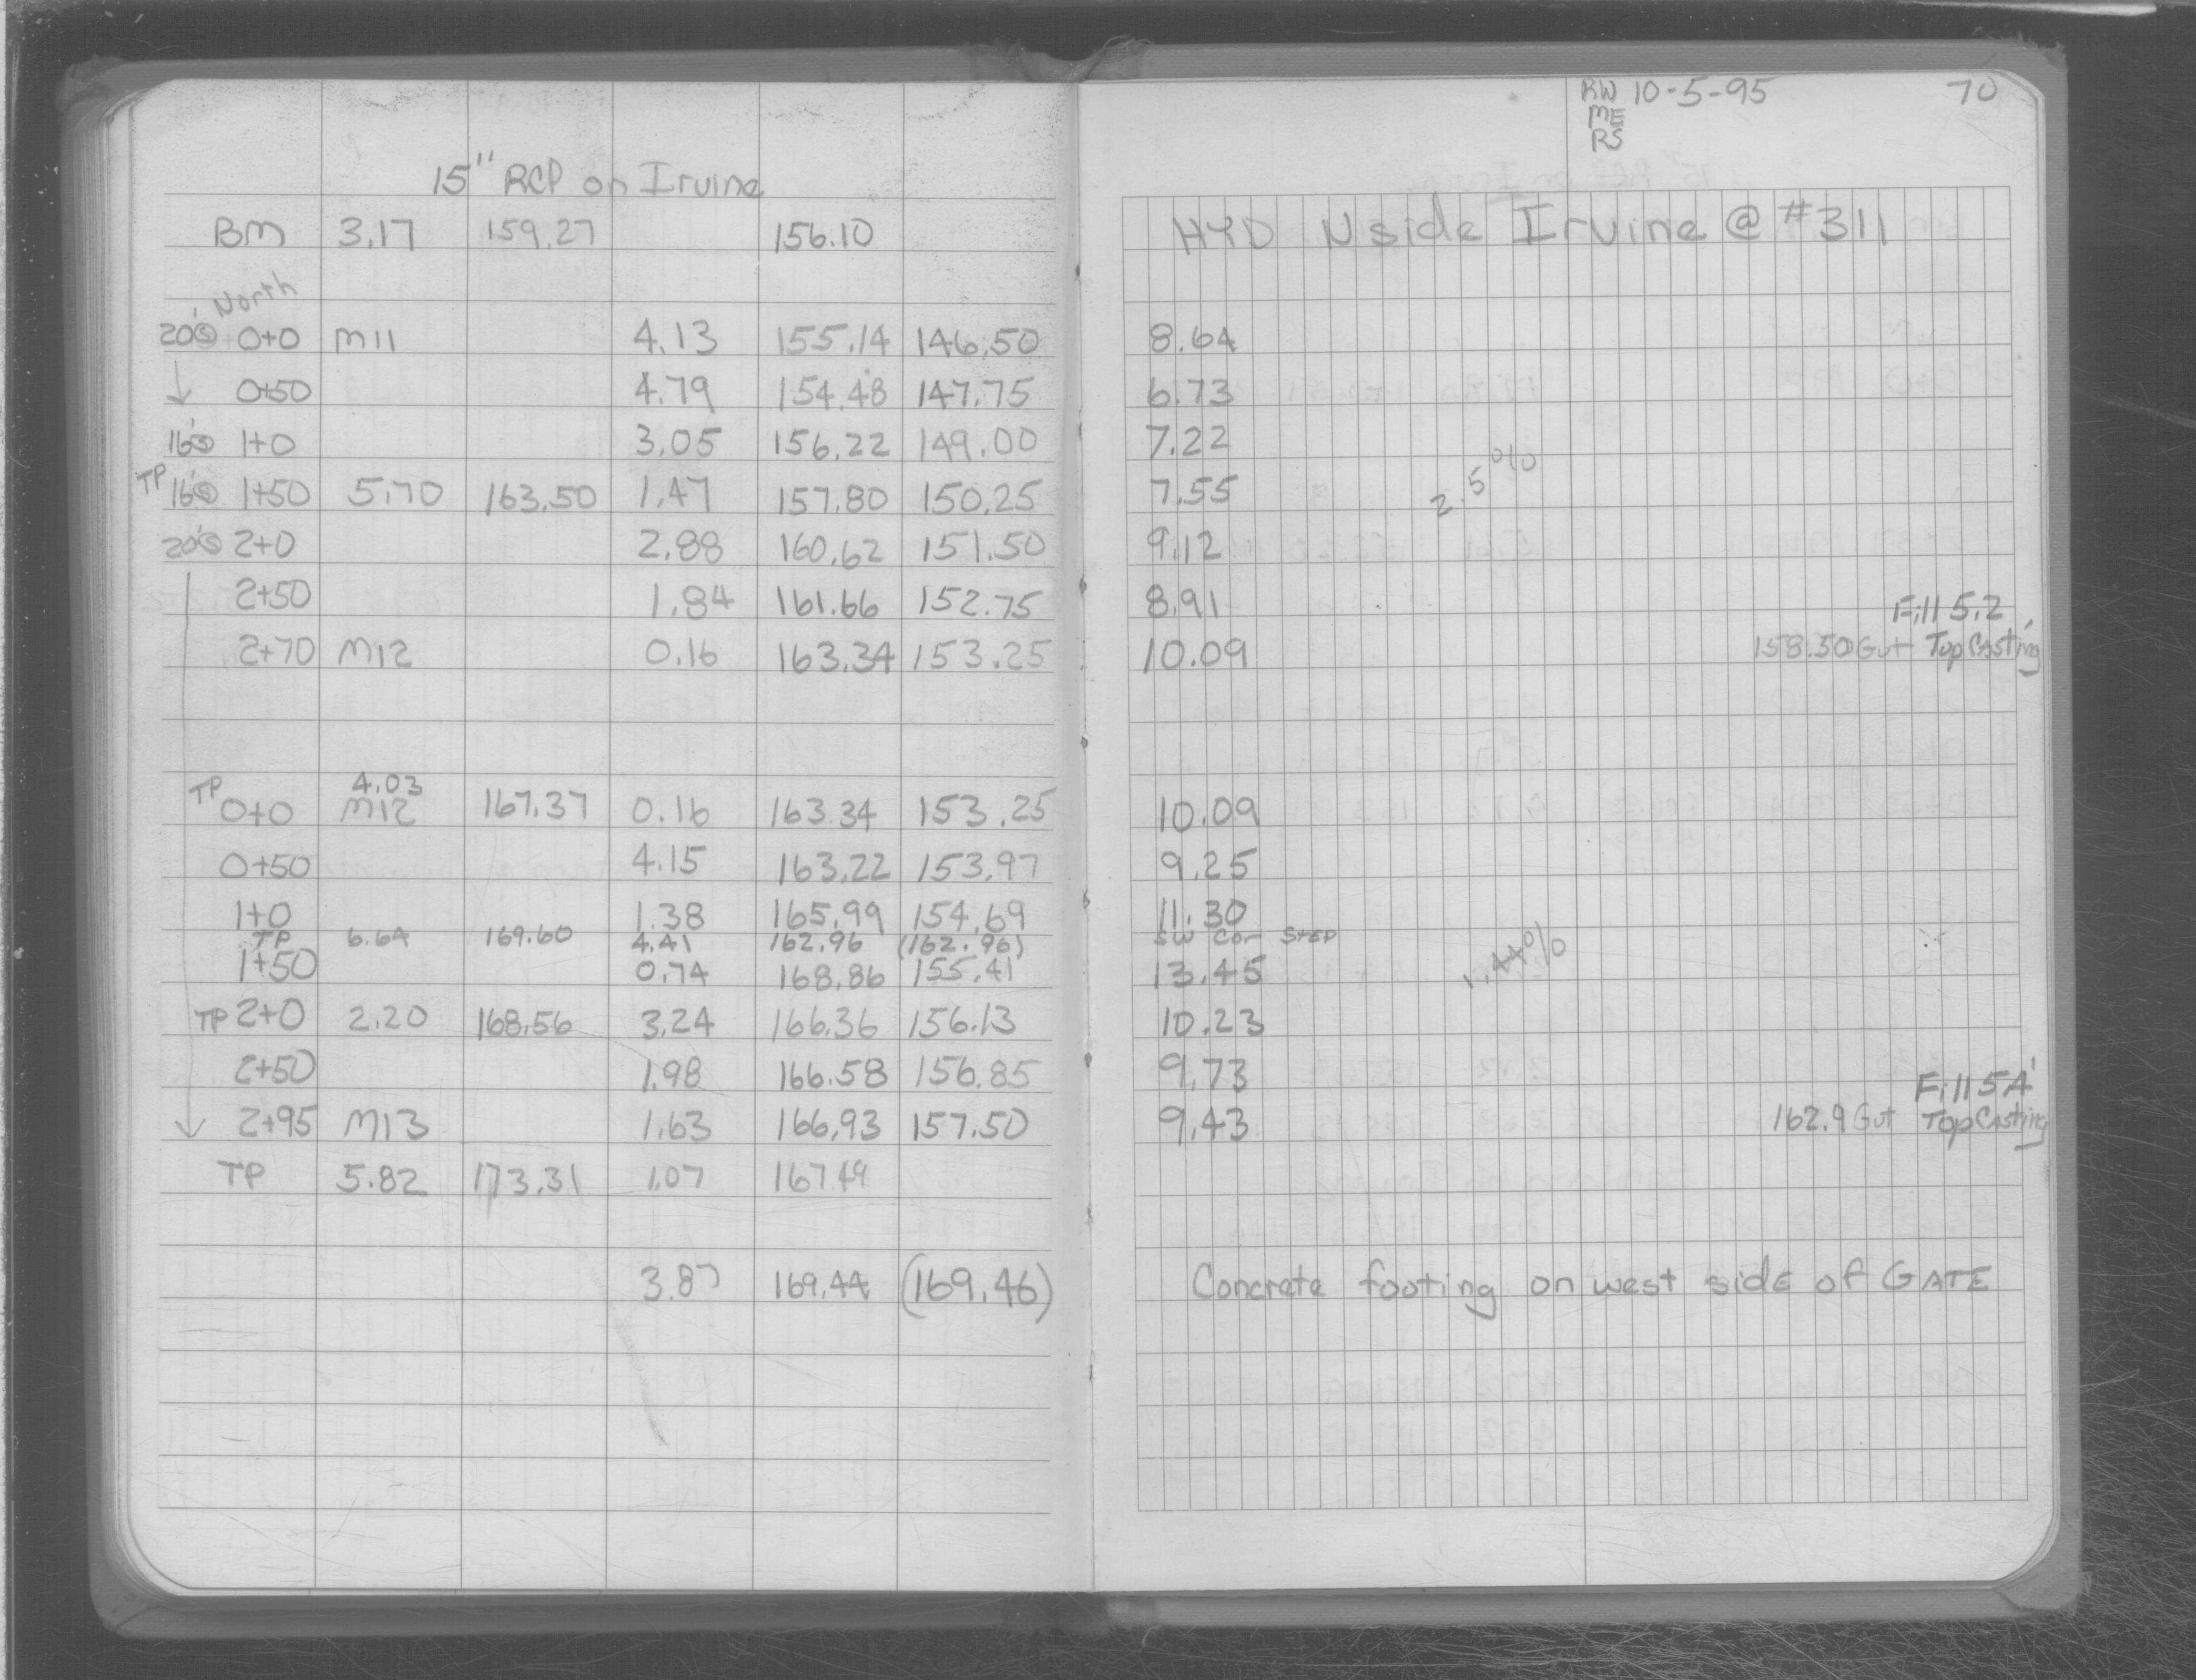 15" RCP on Irvine
BM 3.17 159.27 156.10
North
20'S 0+0 M11 4.13 155.14 146.50
↓ 0+50 4.79 154.48 147.75
16'S 1+0 3.05 156.22 149.00
TP 16'S 1+50 5.70 163.50 1.47 157.80 150.25
20'S 2+0 2.88 160.62 151.50
2+50 1.84 161.66 152.75
2+70 M12 0.16 163.34 153.25
4.03
TP 0+0 M12 167.37 0.16 163.34 153.25
0+50 4.15 163.22 153.97
1+0 1.38 165.99 154.69
TP 6.64 169.60 4.41 162.96 (162.96)
1+50 0.74 168.86 155.41
TP 2+0 2.20 168.56 3.24 166.36 156.13
2+50 1.98 166.58 156.85
↓ 2+95 M13 1.63 166.93 157.50
TP 5.82 173.31 1.07 167.49
3.87 169.44 (169.46)
RW 10-5-95 70
ME
RS
HYD N side Irvine @ #311
8.64
6.73
7.22
7.55 2.5%
9.12
8.91 Fill 5.2'
10.09 158.50 Gut Top Casting
10.09
9.25
11.30
SW Cor STEP
13.45 1.44%
10.23
9.73 Fill 5.4'
9.43 162.9 Gut Top Casting
Concrete footing on west side of GATE